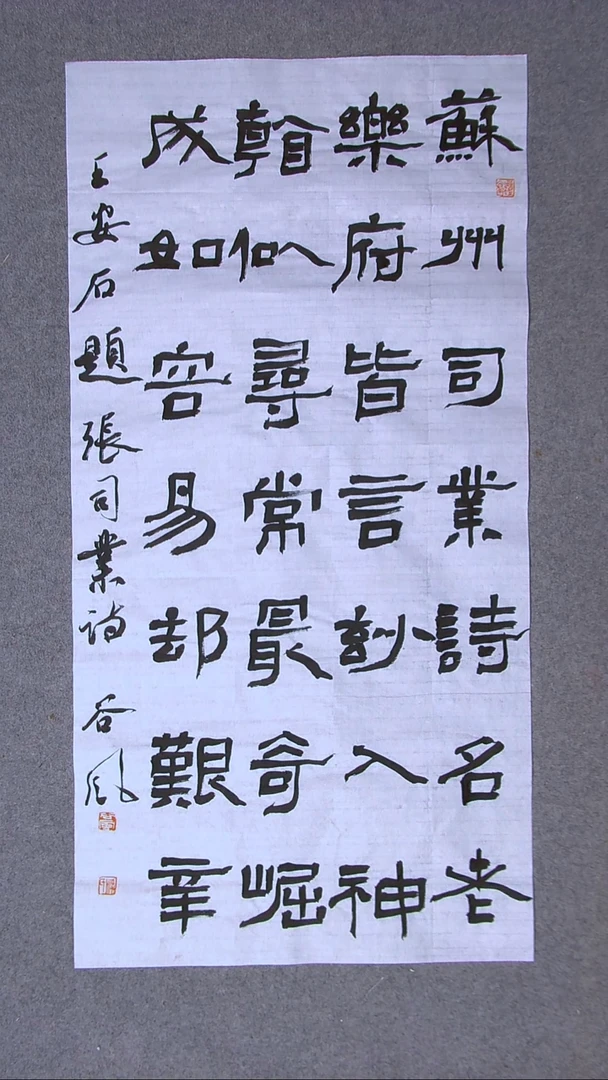 蘇州司業詩名老
樂府皆言妙入神
看似尋常最奇崛
成如容易却艱辛
王安石題張司業诗 谷风